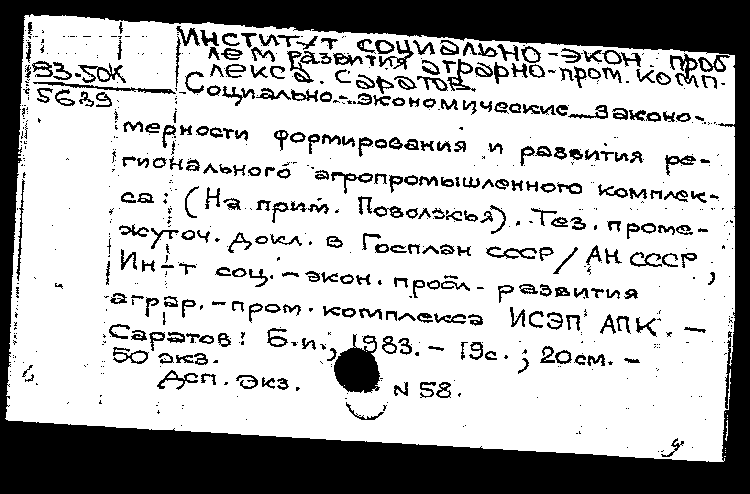 Институт социально-экон. проб
лем развития аграрно-пром. комп-
лекса. Саратов.
83-50К
5639
Социально-экономические законо-
мерности формирования и развития ре-
гионального агропромышленного комплек-
са: (На прим. Поволжья). Тез. проме-
жуточ. докл. в Госплан СССР / АН СССР,
Ин-т соц.-экон. пробл. развития
аграр.-пром. комплекса ИСЭП АПК. -
Саратов: Б.и., 1983. - 19с.; 20см. -
50 экз.
Дсп. Экз. N 58.